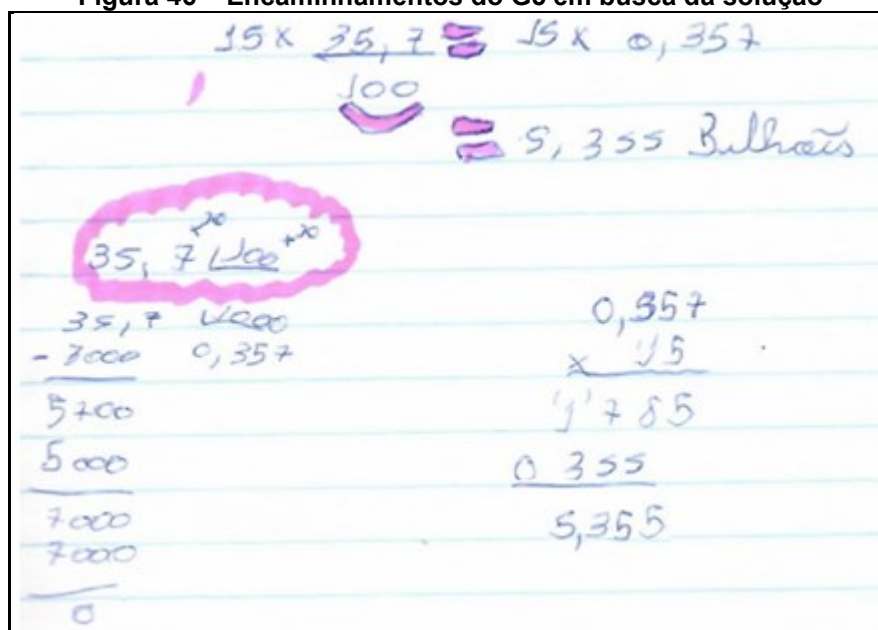 Figura 40 – Encaminhamentos do G6 em busca da solução
15 x 35,7 = 15 x 0,357
100
= 5,355 Bilhões
35,7 100
35,7 1000
- 3000 0,357
5700
5000
7000
7000
0
0,357
x 15
1785
0 355
5,355